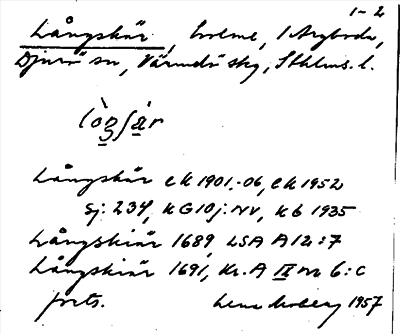 1-2
Långskär, holme, 1 Myrboda,
Djurö sn, Värmdö skg, Sthlms. l.
Långskär ek 1901-06, ek 1952
Sj: 234, KG10j: NV, Kb 1935
Långskiär 1689, LSA A12:7
Långskiär 1691, Kr. A IX nr 6:c
forts. Lena Moberg 1957